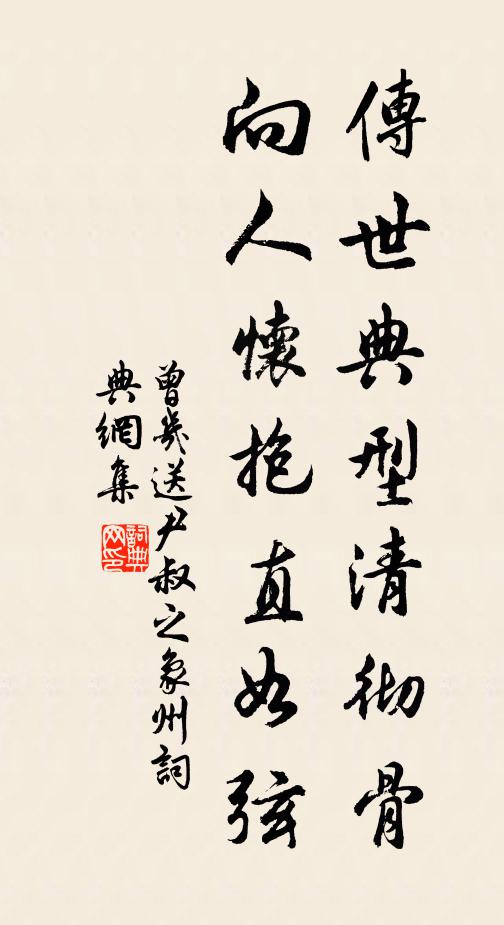 傳世典型清彻骨
向人懷抱直如弦
曾幾送尹叔之象州詞
典網集
詞典网印